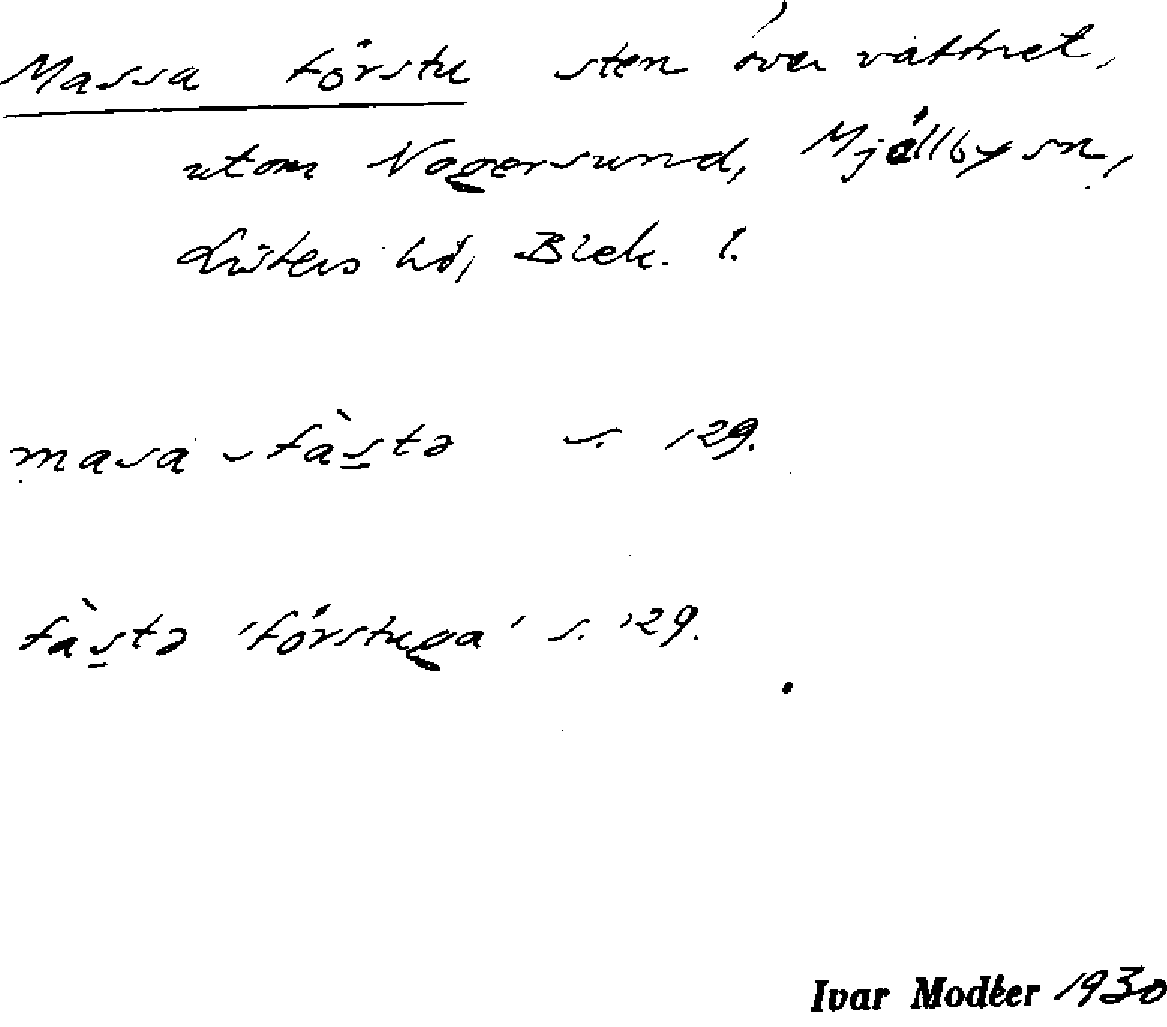 Massa förstu sten över vattnet,
utom Nogersund, Mjällby sn,
Listers hd, Blek. l.
masa - fàstə s. 129.
fàstə 'förstuga' s. 129.
Ivar Modéer 1930